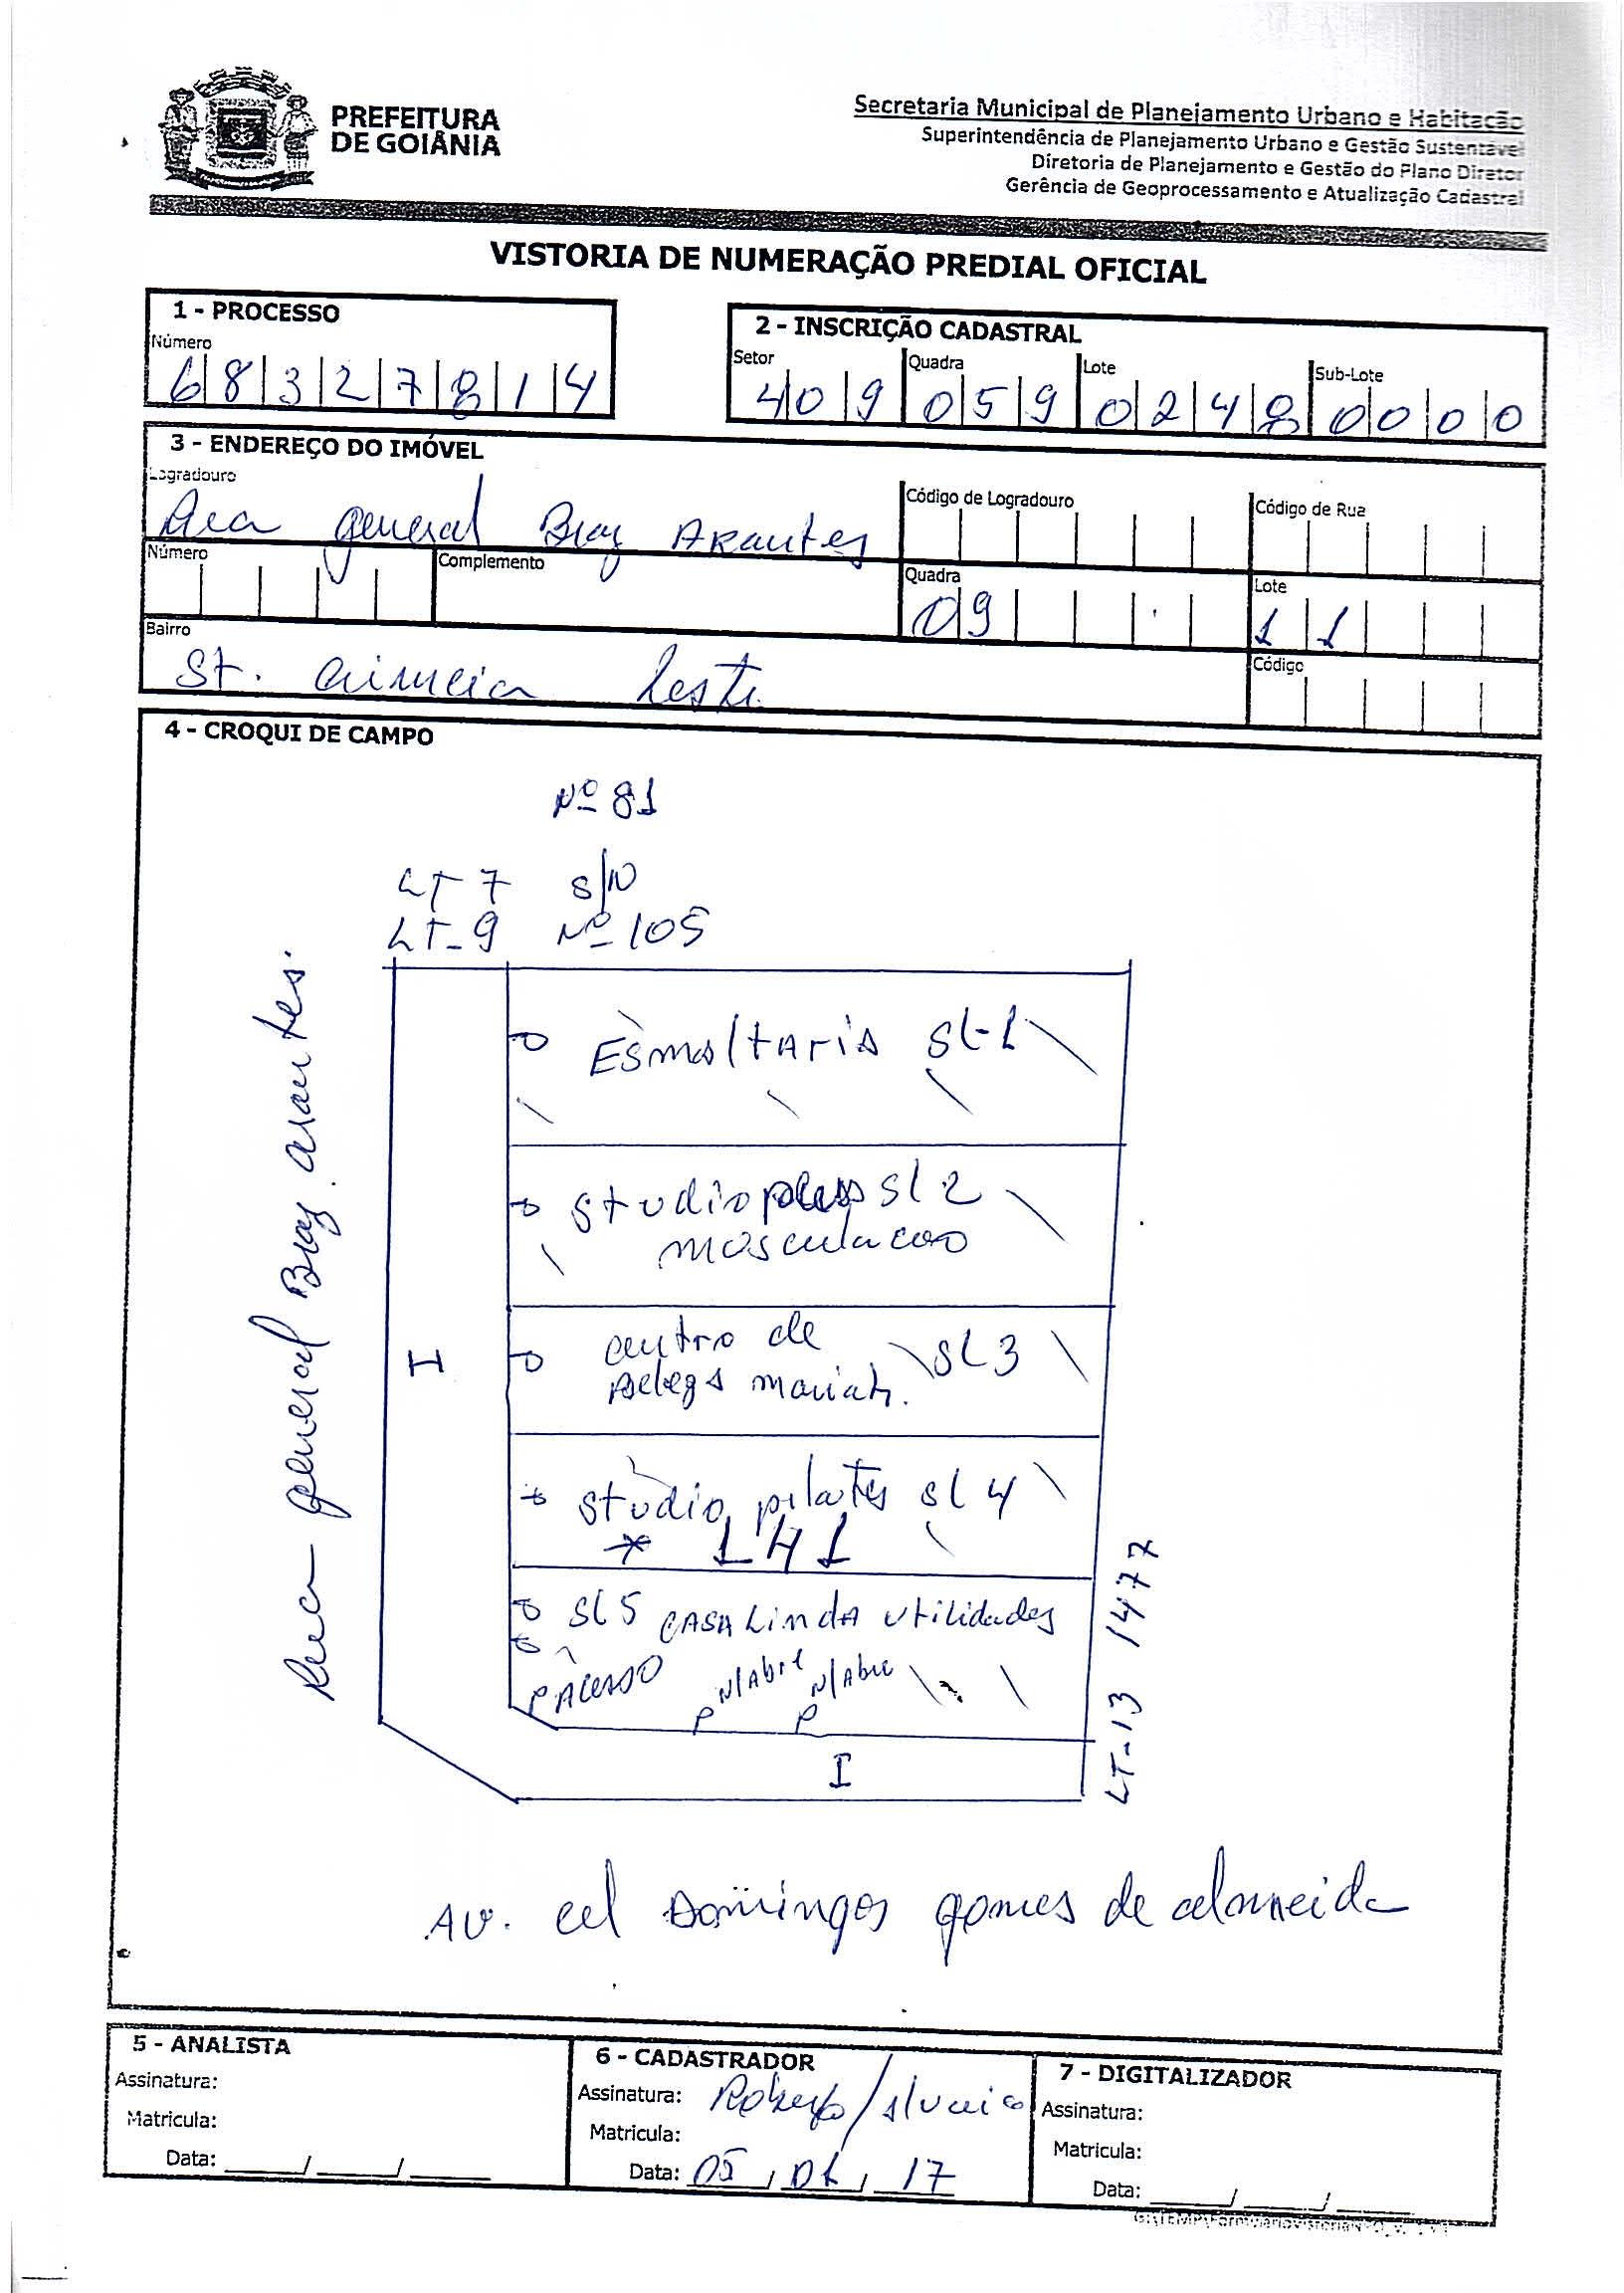 PREFEITURA
DE GOIÂNIA
Secretaria Municipal de Planejamento Urbano e Habitação
Superintendência de Planejamento Urbano e Gestão Sustentável
Diretoria de Planejamento e Gestão do Plano Diretor
Gerência de Geoprocessamento e Atualização Cadastral
VISTORIA DE NUMERAÇÃO PREDIAL OFICIAL
1 - PROCESSO
Número
68327814
2 - INSCRIÇÃO CADASTRAL
Setor Quadra Lote Sub-Lote
409 059 0248 0000
3 - ENDEREÇO DO IMÓVEL
Logradouro Código de Logradouro Código de Rua
general Braz Arantes
Número Complemento Quadra Lote
09 11
Bairro Código
St. Leste
4 - CROQUI DE CAMPO
Nº 81
LT 7 S/N
LT-9 Nº 105
Rua general Braz arantes.
Esmaltaria SL-1
Studio plus SL 2
musculacao
I
centro de SL3
studio pilates SL 4
* 141
SL5 CASA LindA Utilidades
P ACESSO N/Abre N/Abre
P P
I
LT-13 1477
AV. cel Domingos gomes de almeida
5 - ANALISTA
Assinatura:
Matricula:
Data: ___/___/___
6 - CADASTRADOR
Assinatura: Roberto /
Matricula:
Data: 05 / 01 / 17
7 - DIGITALIZADOR
Assinatura:
Matricula:
Data: ___/___/___